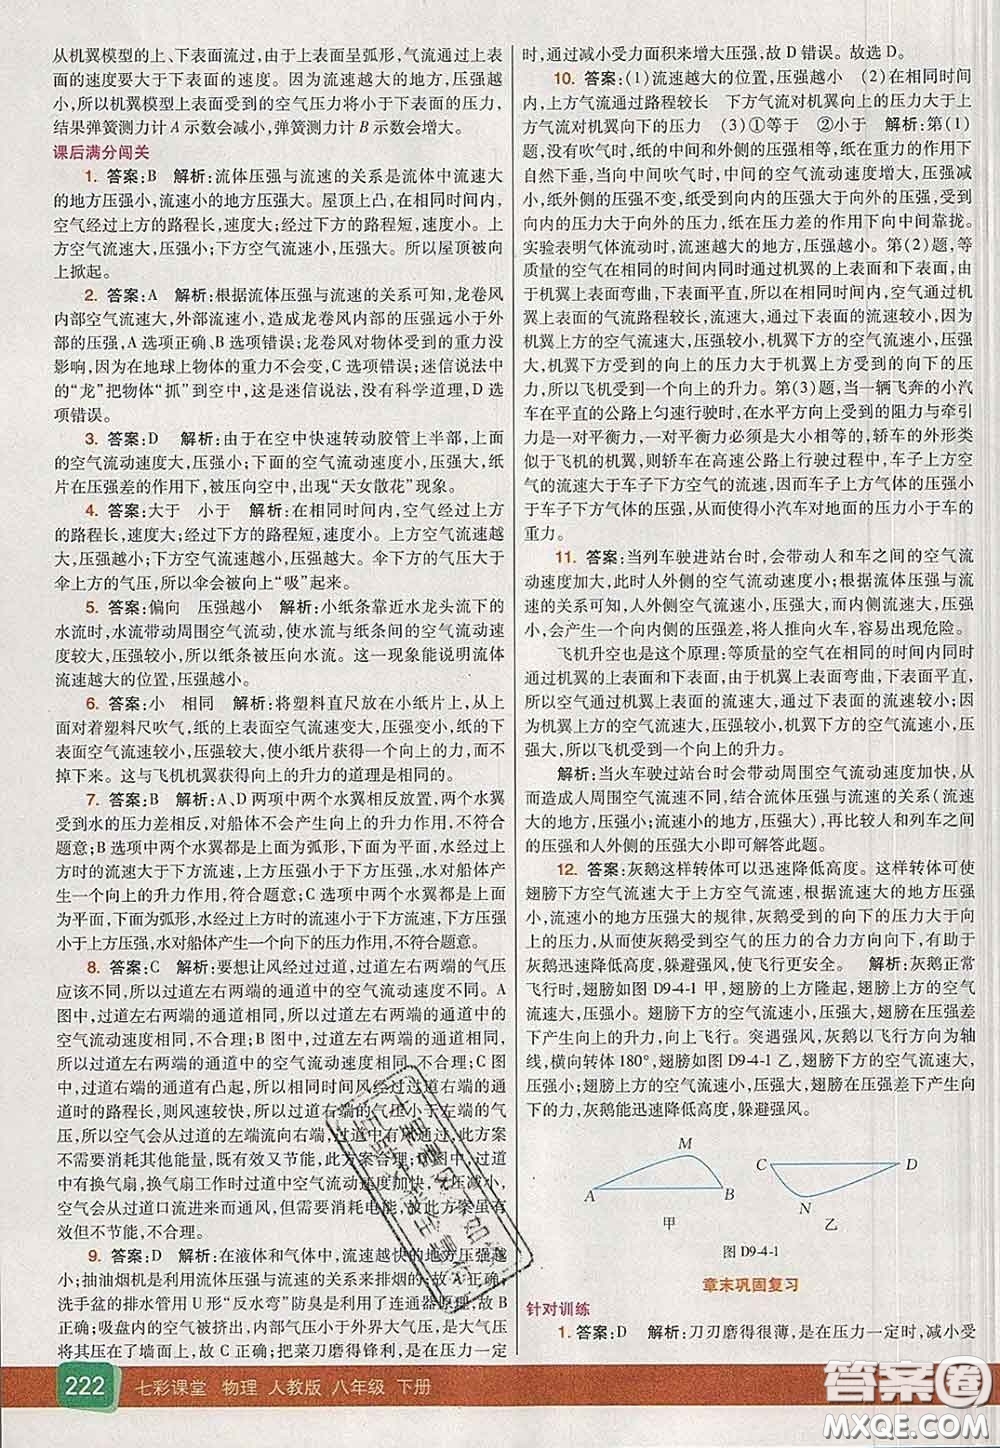 从机翼模型的上、下表面流过,由于上表面呈弧形,气流通过上表
面的速度要大于下表面的速度。因为流速越大的地方,压强越
小,所以机翼模型上表面受到的空气压力将小于下表面的压力,
结果弹簧测力计A示数会减小,弹簧测力计B示数会增大。
课后满分闯关
1. 答案:B 解析:流体压强与流速的关系是流体中流速大
的地方压强小,流速小的地方压强大。屋顶上凸,在相同时间内,
空气经过上方的路程长,速度大;经过下方的路程短,速度小。上
方空气流速大,压强小;下方空气流速小,压强大。所以屋顶被向
上掀起。
2. 答案:A 解析:根据流体压强与流速的关系可知,龙卷风
内部空气流速大,外部流速小,造成龙卷风内部的压强远小于外
部的压强,A选项正确、B选项错误;龙卷风对物体受到的重力没
影响,因为在地球上物体的重力不会变,C选项错误;迷信说法中
的“龙”把物体“抓”到空中,这是迷信说法,没有科学道理,D选
项错误。
3. 答案:D 解析:由于在空中快速转动胶管上半部,上面
的空气流动速度大,压强小;下面的空气流动速度小,压强大,纸
片在压强差的作用下,被压向空中,出现“天女散花”现象。
4. 答案:大于 小于 解析:在相同时间内,空气经过上方
的路程长,速度大;经过下方的路程短,速度小。上方空气流速越
大,压强越小;下方空气流速小,压强越大。伞下方的气压大于
伞上方的气压,所以伞会被向上“吸”起来。
5. 答案:偏向 压强越小 解析:小纸条靠近水龙头流下的
水流时,水流带动周围空气流动,使水流与纸条间的空气流动速
度较大,压强较小,所以纸条被压向水流。这一现象能说明流体
流速越大的位置,压强越小。
6. 答案:小 相同 解析:将塑料直尺放在小纸片上,从上
面对着塑料尺吹气,纸的上表面空气流速变大,压强变小,纸的下
表面空气流速较小,压强较大,使小纸片获得一个向上的力,而不
掉下来。这与飞机机翼获得向上的升力的道理是相同的。
7. 答案:B 解析:A、D两项中两个水翼相反放置,两个水翼
受到水的压力差相反,对船体不会产生向上的升力作用,不符合
题意;B选项中两个水翼都是上面为弧形,下面为平面,水经过上
方时的流速大于下方流速,上方压强小于下方压强,水对船体产
生一个向上的升力作用,符合题意;C选项中两个水翼都是上面
为平面,下面为弧形,水经过上方时的流速小于下方流速,下方压
强小于上方压强,水对船体产生一个向下的压力作用,不符合题意。
8. 答案:C 解析:要想让风经过过道,过道左右两端的气压
应该不同,所以过道左右两端的通道中的空气流动速度不同。A
图中,过道左右两端的通道相同,所以过道左右两端的通道中的
空气流动速度相同,不合理;B图中,过道左右两端的通道相同,
所以过道左右两端的通道中的空气流动速度相同,不合理;C图
中,过道右端的通道有凸起,在相同时间内,空气经过过道右端
时的路程长,则风速快,所以过道右端的气压小于左端的气
压,所以空气会从过道的左端流向右端,过道中有风通过,此方案
不需要消耗能量,既有效又节能,此方案合理;D图中,过道右端
有换气扇,换气扇工作时过道中空气流动速度加快,气压减小,
空气会从过道口流进来而通风,但需要消耗电能,故此方案虽有
效但不节能,不合理。
9. 答案:D 解析:在液体和气体中,流速越快的地方压强越
小;抽油烟机是利用流体压强与流速的关系来排烟的;故A正确;
洗手盆的排水管用U形“反水弯”防臭是利用了连通器原理;故B
正确;吸盘内的空气被挤出,内部压强小于外界大气压,大气压
将其压在了墙面上,故C正确;把菜刀磨得锋利,是在压力一定
时,通过减小受力面积来增大压强,故D错误。故选D。
10. 答案:(1)流速越大的位置,压强越小 (2)在相同时间
内,上方气流通过路程较长 下方气流对机翼向上的压力大于上
方气流对机翼向下的压力 (3)①等于 ②小于 解析:第(1)
题,没有吹气时,纸的中间和外侧的压强相等,纸在重力的作用下
自然下垂,当向中间吹气时,中间的空气流动速度增大,压强减
小,纸外侧的压强不变,纸受到向内的压强大于向外的压强,受到
向内的压力大于向外的压力,纸在压力差的作用下向中间靠拢。
实验表明气体流动时,流速越大的地方,压强越小。第(2)题,等
质量的空气在相同的时间内同时通过机翼的上表面和下表面,
由于机翼上表面弯曲,下表面平直,所以空气通过机
翼上表面的气流路程较长,流速大,通过下表面的流速较小,因为
机翼上方的空气流速大,压强较小,机翼下方的空气流速小,压强
较大,所以机翼下方受到向上的压力大于机翼上方受到向下的压
力,所以飞机受到一个向上的升力。第(3)题,当一辆飞奔的小汽
车在平直的公路上匀速行驶时,在水平方向上受到的阻力与牵引
力是一对平衡力,一对平衡力的大小总是相等的,轿车的外形类
似于飞机的机翼,则轿车在高速公路上行驶过程中,车子上方空气
的流速大于车子下方空气的流速,因此车子上方气体的压强小
于车子下方气体的压强,因此行驶的小汽车对地面的压力小于车的
重力。
11. 答案:当列车驶进站台时,会带动人和车之间的空气流
动速度加大,此时人外侧的空气流动速度小;根据流体压强与流
速的关系可知,人外侧空气流速小,压强大,而内侧流速大,压强
小,会产生一个向内侧的压强差,将人推向火车,容易出现危险。
飞机升空也是这个原理:等质量的空气在相同的时间内同时
通过机翼的上表面和下表面,由于机翼上表面弯曲,下表面平直,
所以空气通过机翼上表面的流速大,通过下表面的流速较小;因
为机翼上方的空气流速大,压强较小,机翼下方的空气流速小,压
强大,所以飞机受到一个向上的升力。
解析:当火车驶过站台时会带动周围空气流动速度加大,从
而造成人周围空气流速不同,结合流体压强与流速的关系(流速
大的地方,压强小;流速小的地方,压强大),再比较人和列车之间
的压强和人外侧的压强大小即可解答此题。
12. 答案:灰鹅这样转体可迅速降低高度。这样转体可使
翅膀下方空气流速大于上方空气流速,根据流速大的地方压强
小,流速小的地方压强大的规律,灰鹅受到的向下的压力大于向
上的压力,从而使灰鹅受到空气的压力的合力方向向下,有助于
灰鹅迅速降低高度,躲避强风,使飞行更安全。 解析:灰鹅正常
飞行时,翅膀如图D9-4-1甲,翅膀的上方隆起,翅膀上方的空气
流速大,压强小,翅膀下方的空气流速小,压强大,翅膀在压强差
下产生向上的升力,向上飞行。突遇强风,灰鹅以飞行方向为轴
线,横向转体180°,翅膀如图D9-4-1乙,翅膀下方的空气流速大,
压强小;翅膀上方的空气流速小,压强大,翅膀在压强差下产生向
下的力,灰鹅能迅速降低高度,躲避强风。
M
A B
甲
C D
N
乙
图D9-4-1
章末巩固复习
针对训练
1. 答案:D 解析:刀刃磨得很薄,是在压力一定时,减小受
222 七彩课堂 物理 人教版 八年级 下册
答案圈
MXQE.COM